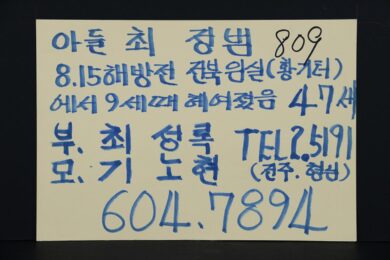 아들 최 장범 809
8.15해방전 전북임실(황기터)
에서 9세때 헤어졌음 47세
부. 최 성록 TEL 2.5191
모. 기 노현 (전주. 형님)
604.7894